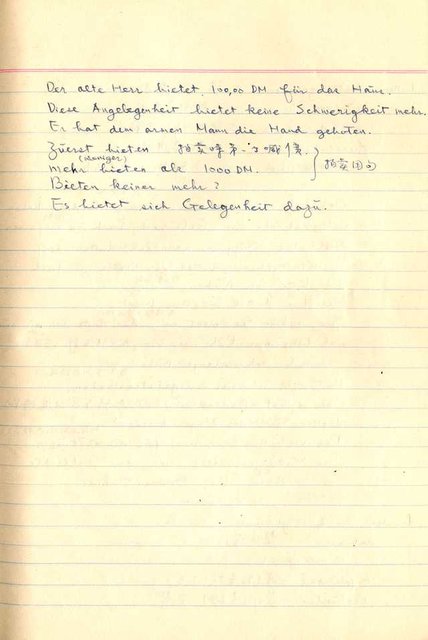 Der alte Herr bietet 100,00 DM für das Haus.
Diese Angelegenheit bietet keine Schwerigkeit mehr.
Er hat dem armen Mann die Hand geboten.
Züerst bieten 拍卖时第一个喊价.
(weniger)
mehr bieten als 1000 DM. } 拍卖用句
Bieten keiner mehr?
Es bietet sich Gelegenheit dazü.